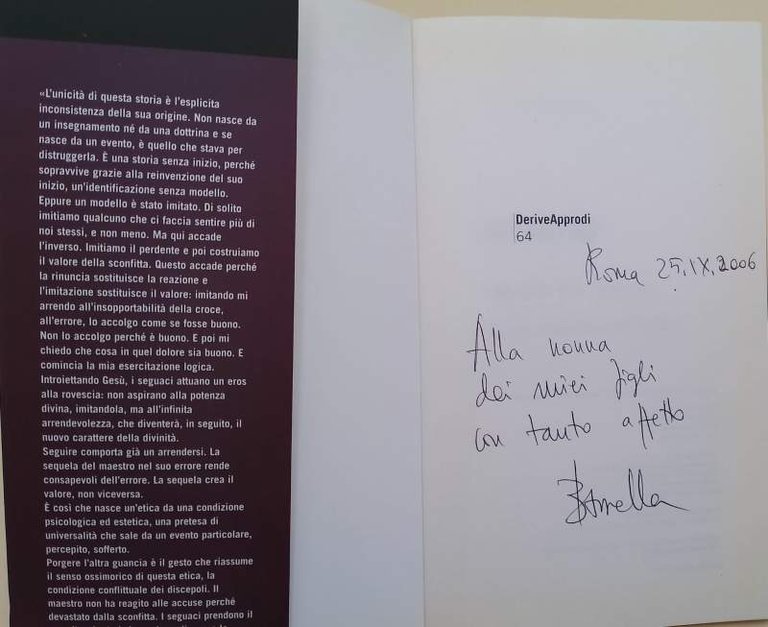 «L'unicità di questa storia è l'esplicita
inconsistenza della sua origine. Non nasce da
un insegnamento né da una dottrina e se
nasce da un evento, è quello che stava per
distruggerla. È una storia senza inizio, perché
sopravvive grazie alla reinvenzione del suo
inizio, un'identificazione senza modello.
Eppure un modello è stato imitato. Di solito
imitiamo qualcuno che ci faccia sentire più di
noi stessi, e non meno. Ma qui accade
l'inverso. Imitiamo il perdente e poi costruiamo
il valore della sconfitta. Questo accade perché
la rinuncia sostituisce la reazione e
l'imitazione sostituisce il valore: imitando mi
arrendo all'insopportabilità della croce,
all'errore, lo accolgo come se fosse buono.
Non lo accolgo perché è buono. E poi mi
chiedo che cosa in quel dolore sia buono. E
comincia la mia esercitazione logica.
Introiettando Gesù, i seguaci attuano un eros
alla rovescia: non aspirano alla potenza
divina, imitandola, ma all'infinita
arrendevolezza, che diventerà, in seguito, il
nuovo carattere della divinità.
Seguire comporta già un arrendersi. La
sequela del maestro nel suo errore rende
consapevoli dell'errore. La sequela crea il
valore, non viceversa.
È così che nasce un'etica da una condizione
psicologica ed estetica, una pretesa di
universalità che sale da un evento particolare,
percepito, sofferto.
Porgere l'altra guancia è il gesto che riassume
il senso ossimorico di questa etica, la
condizione conflittuale dei discepoli. Il
maestro non ha reagito alle accuse perché
devastato dalla sconfitta. I seguaci prendono il
DeriveApprodi
64
Roma 25.IX.2006
Alla nonna
dei miei figli
con tanto affetto